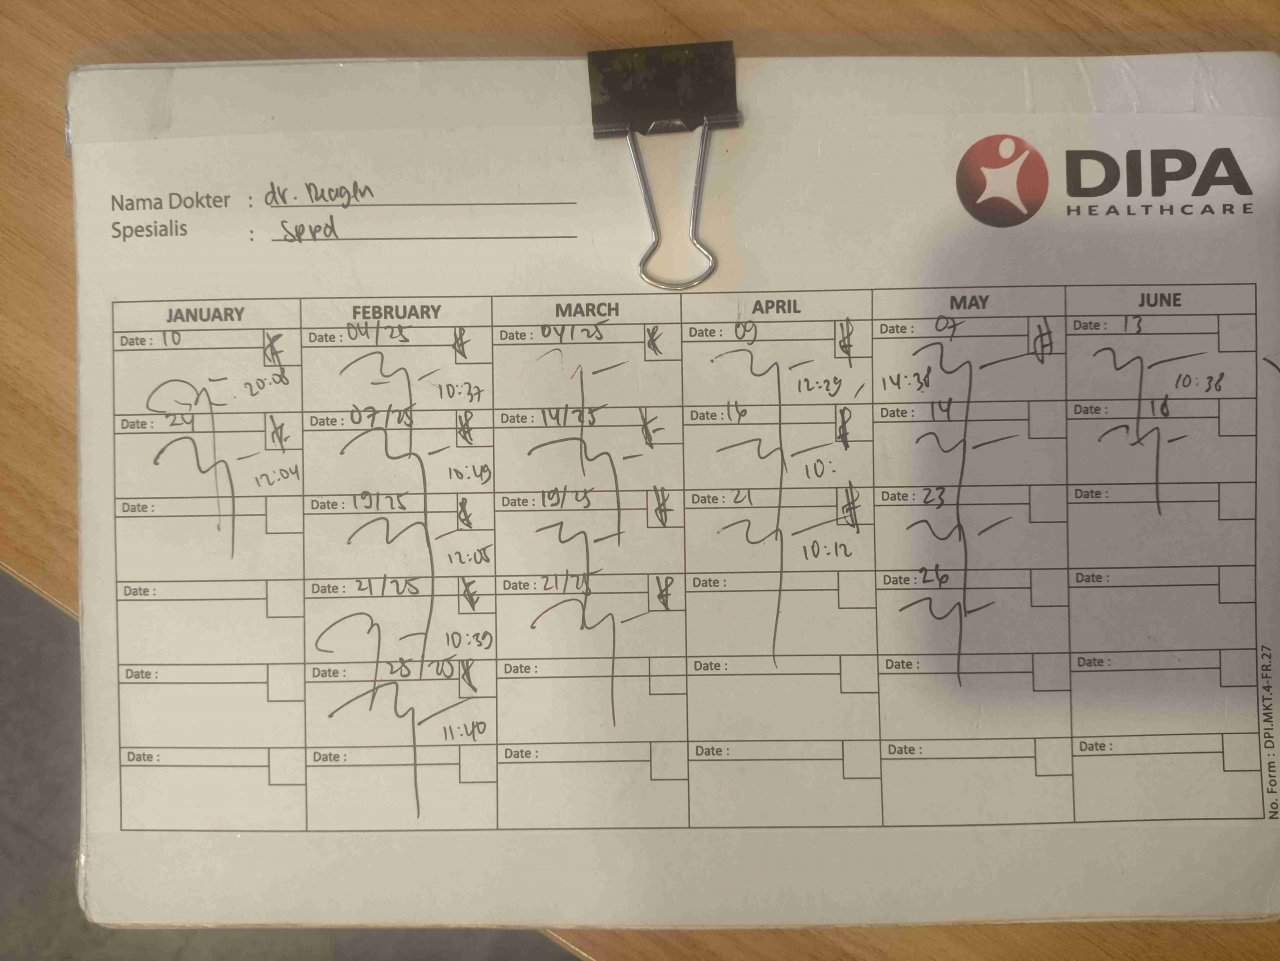 DIPA
HEALTHCARE
Nama Dokter : dr.
Spesialis : Sppd
JANUARY FEBRUARY MARCH APRIL MAY JUNE
Date : 10 Date : 04/25 Date : 04/25 Date : 09 Date : 07 Date : 13
20:08 10:37 12:29 14:38 10:38
Date : 24 Date : 07/25 Date : 14/25 Date : 16 Date : 14 Date : 18
12:04 10:49 10:
Date : Date : 19/25 Date : 19/25 Date : 21 Date : 23 Date :
12:05 10:12
Date : Date : 21/25 Date : 21/25 Date : Date : 26 Date :
10:39
Date : Date : 25/25 Date : Date : Date : Date :
11:40
Date : Date : Date : Date : Date : Date :
No. Form : DPI.MKT.4-FR.27